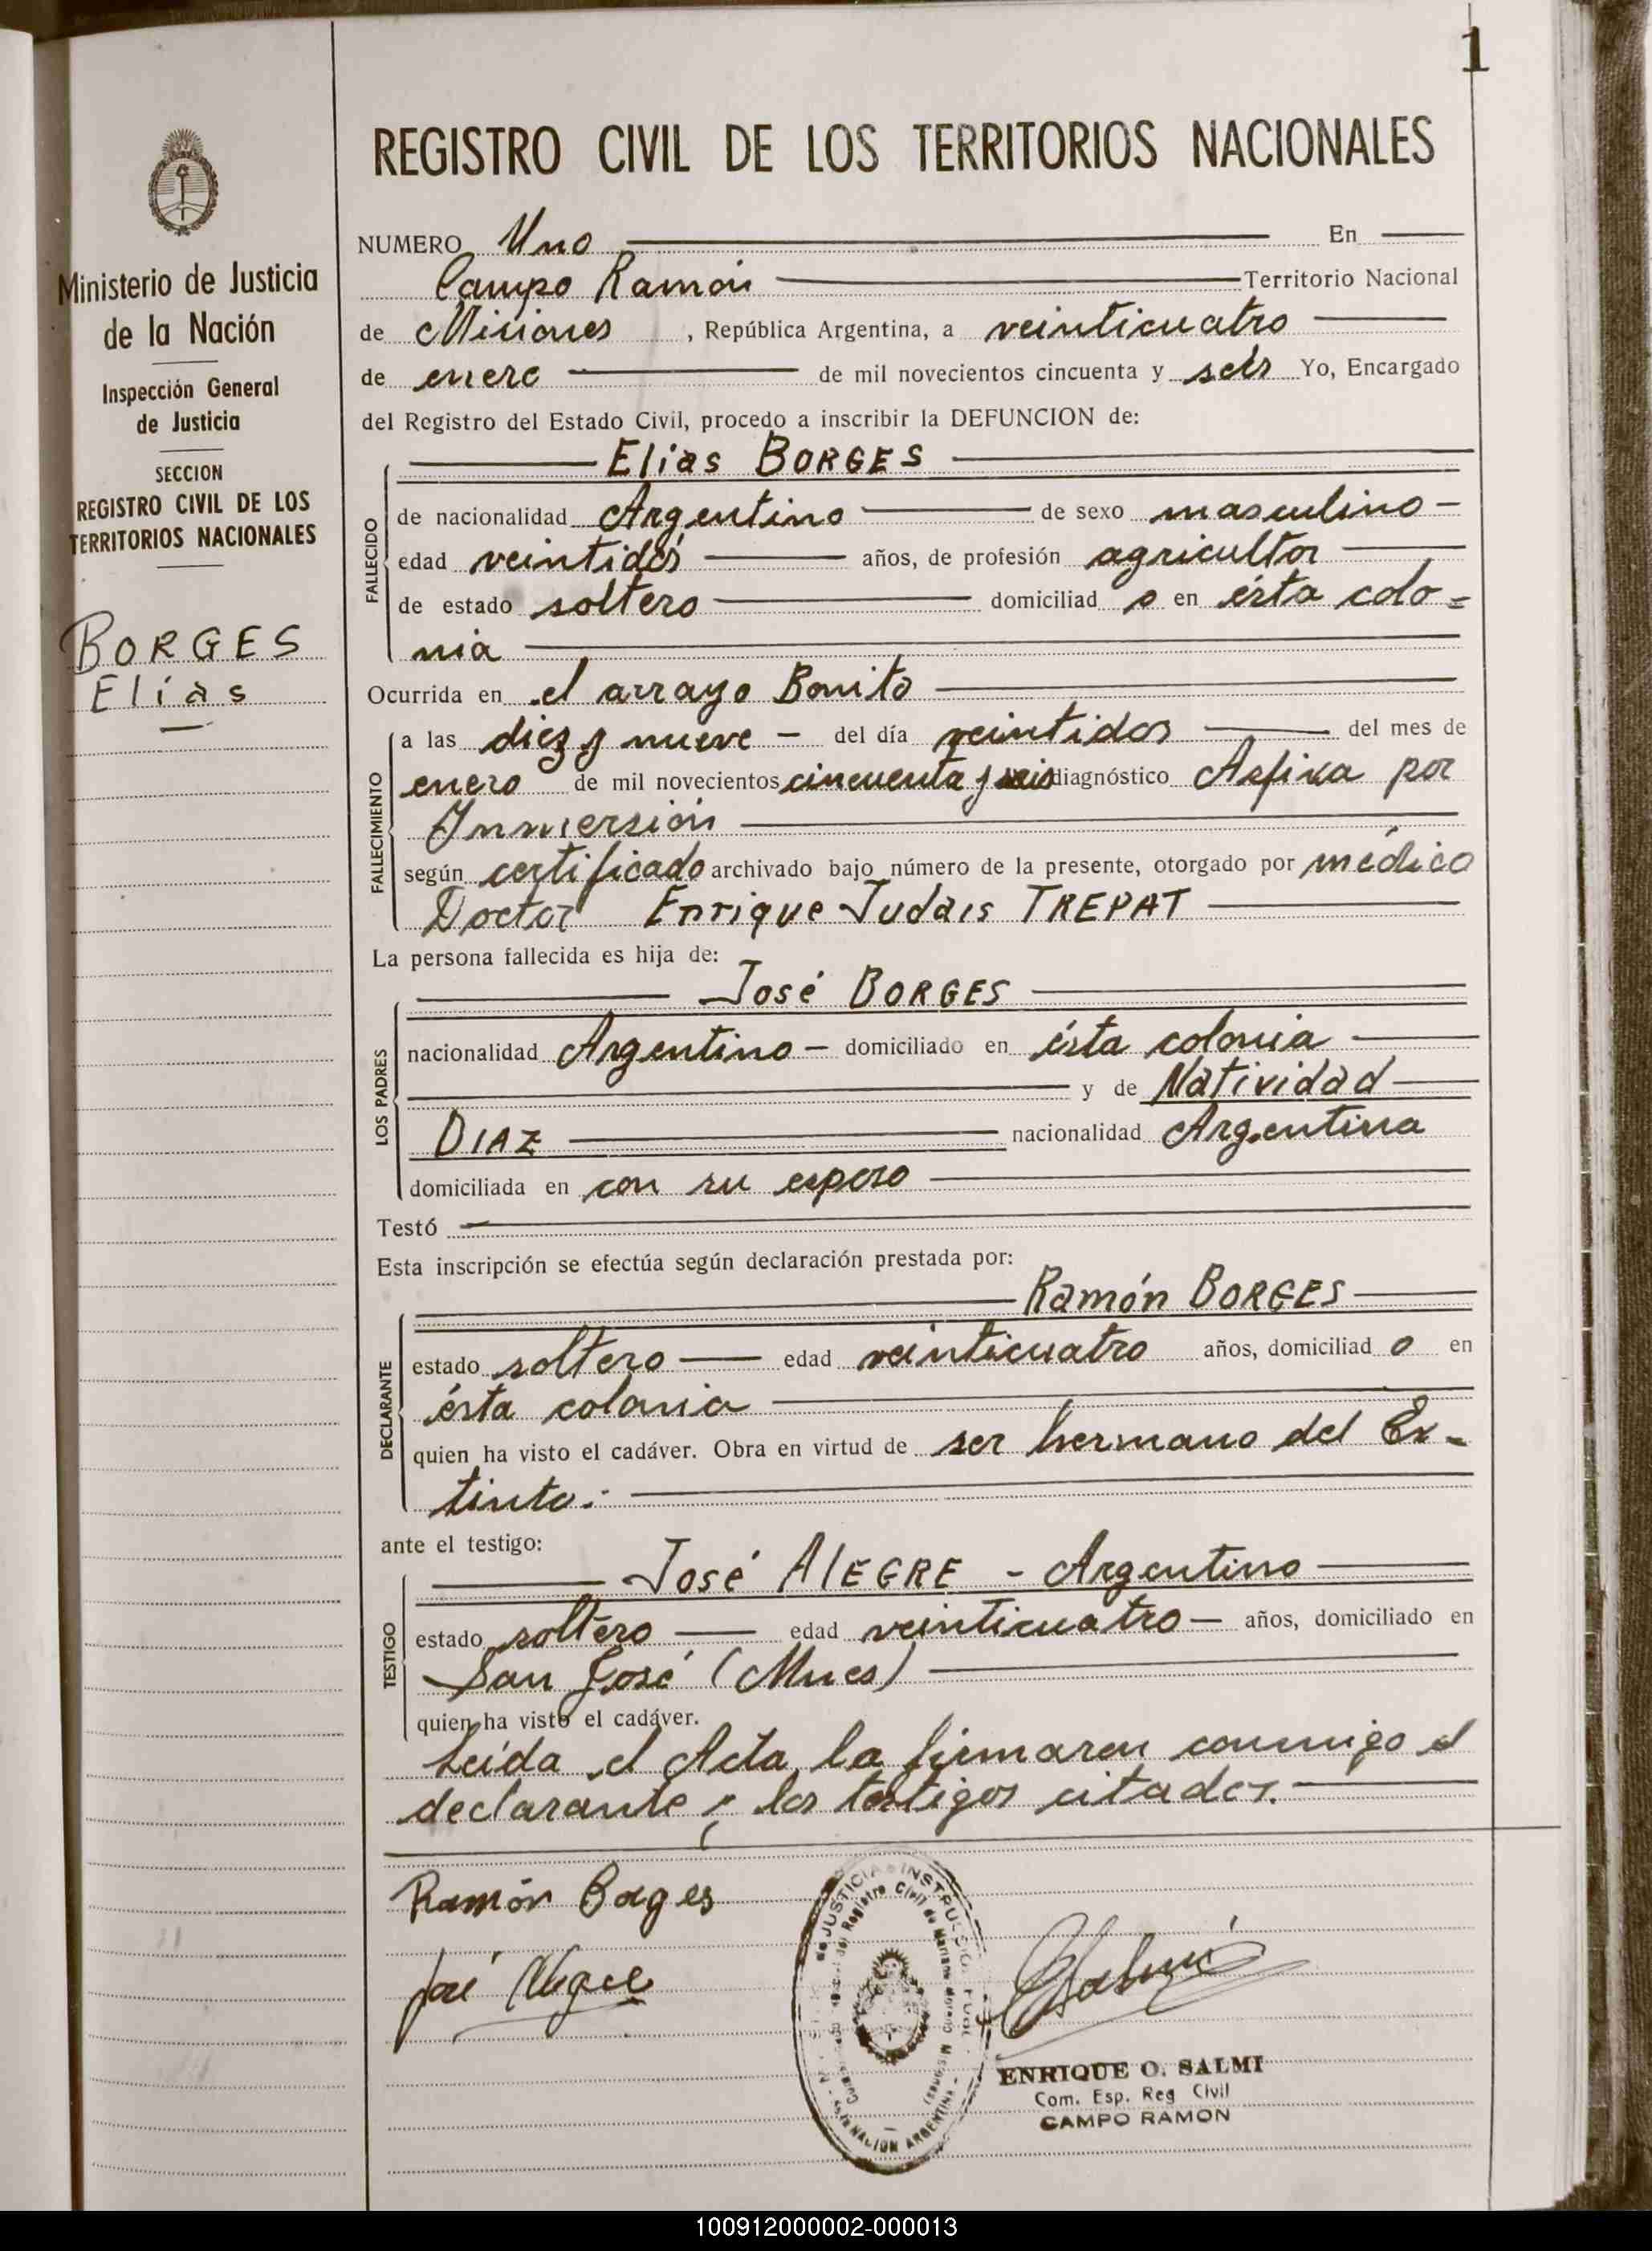 1
REGISTRO CIVIL DE LOS TERRITORIOS NACIONALES
Ministerio de Justicia
de la Nación
Inspección General
de Justicia
SECCION
REGISTRO CIVIL DE LOS
TERRITORIOS NACIONALES
BORGES
Elías
NUMERO Uno En
Campo Ramón Territorio Nacional
de Misiones , República Argentina, a veinticuatro
de enero de mil novecientos cincuenta y seis Yo, Encargado
del Registro del Estado Civil, procedo a inscribir la DEFUNCION de:
Elias BORGES
FALLECIDO
de nacionalidad Argentino de sexo masculino
edad veintidós años, de profesión agricultor
de estado soltero domiciliad o en ésta colo=
nia
Ocurrida en el arrayo Bonito
FALLECIMIENTO
a las diez y nueve - del día veintidos del mes de
enero de mil novecientos cincuenta y seis diagnóstico Asfixa por
Inmersión
según certificado archivado bajo número de la presente, otorgado por médico
Doctor Enrique Judais TREPAT
La persona fallecida es hija de:
José BORGES
LOS PADRES
nacionalidad Argentino - domiciliado en ésta colonia
y de Natividad
DIAZ nacionalidad Argentina
domiciliada en con su esposo
Testó
Esta inscripción se efectúa según declaración prestada por:
Ramón BORGES
DECLARANTE
estado soltero edad veinticuatro años, domiciliad o en
ésta colonia
quien ha visto el cadáver. Obra en virtud de ser hermano del Ex-
tinto.-
ante el testigo:
José AlEGRE - Argentino
TESTIGO
estado soltero edad veinticuatro - años, domiciliado en
San José (Mnes)
quien ha visto el cadáver.
Leída el Acta, la firmaron conmigo el
declarante y los testigos citados.
Ramón Borges
José Alegre
de JUSTICIA e INSTRUC
del Registro Civil de Mariano Moreno Misiones
NACION ARGENTINA
ENRIQUE O. SALMI
Com. Esp. Reg Civil
CAMPO RAMON
100912000002-000013